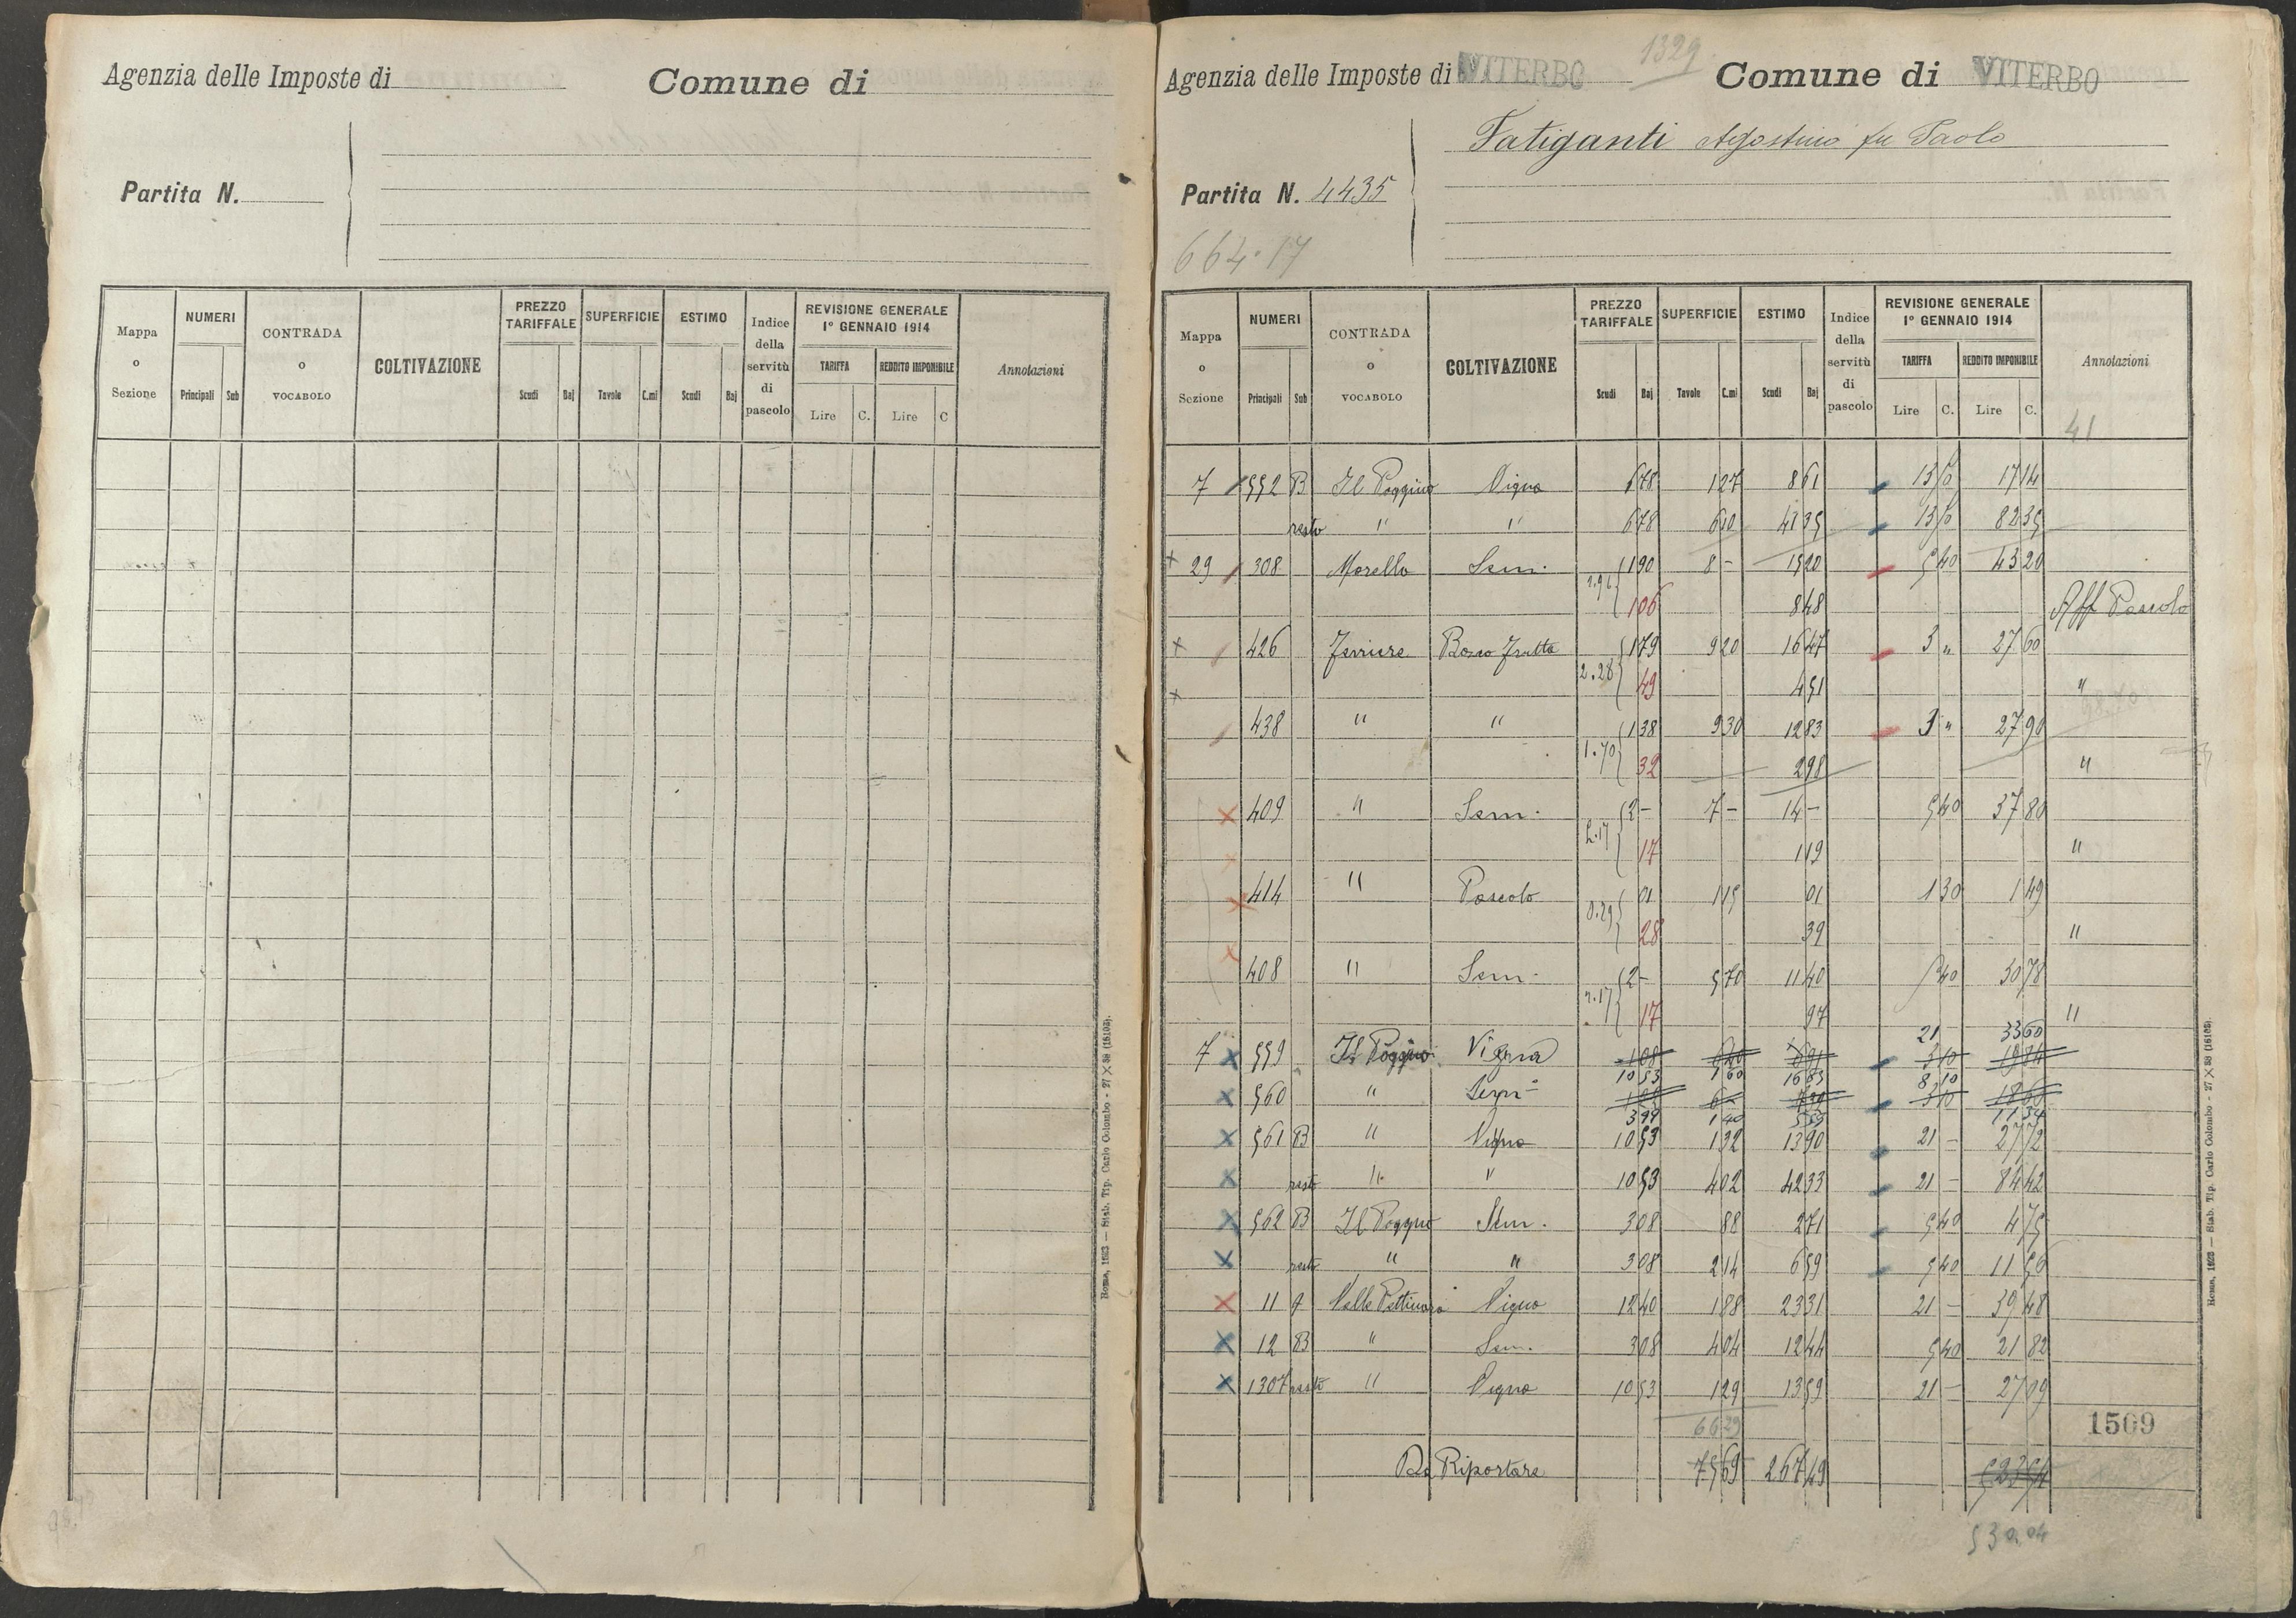 Agenzia delle Imposte di
Comune di
Partita N.
Mappa o Sezione
NUMERI
Principali Sub
CONTRADA o VOCABOLO
COLTIVAZIONE
PREZZO TARIFFALE
Scudi Baj
SUPERFICIE
Tavole C.mi
ESTIMO
Scudi Baj
Indice della servitù di pascolo
REVISIONE GENERALE
1° GENNAIO 1914
TARIFFA
Lire C.
REDDITO IMPONIBILE
Lire C
Annotazioni
Roma, 1923 — Stab. Tip. Carlo Colombo - 27 X 38 (15103).
1329
Agenzia delle Imposte di VITERBO
Comune di VITERBO
Fatiganti Agostino fu Paolo
Partita N. 4435
664.17
Mappa o Sezione
NUMERI
Principali Sub
CONTRADA o VOCABOLO
COLTIVAZIONE
PREZZO TARIFFALE
Scudi Baj
SUPERFICIE
Tavole C.mi
ESTIMO
Scudi Baj
Indice della servitù di pascolo
REVISIONE GENERALE
1° GENNAIO 1914
TARIFFA
Lire C.
REDDITO IMPONIBILE
Lire C.
Annotazioni
41
7 552 B Il Poggino Vigna 6 78 1 27 8 61 13 50 17 14
resto " " 6 78 6 10 41 35 13 50 82 35
29 308 Morello Sem. 1 90 8 - 15 20 5 40 43 20
2.96 1 06 8 48 Aff Pascolo
426 Ferriere Bosco frutta 1 79 9 20 16 47 3 " 27 60
2.28 49 4 51 "
438 " " 1 38 9 30 12 83 3 " 27 90
1.70 32 2 98 "
409 " Sem. 2 - 7 - 14 - 5 40 37 80
2.17 17 1 19 "
414 " Pascolo 01 1 15 01 1 30 1 49
0.29 28 39 "
408 " Sem. 2 - 5 70 11 40 5 40 30 78
2.17 17 97 "
21 33 60
7 559 Il Poggino Vigna
10 53 1 60 16 85 8 10
560 " Sem.
3 99 1 40 11 34
561 B " Vigna 10 53 1 32 13 90 21 - 27 72
resto " " 10 53 4 02 42 33 21 - 84 42
562 B Il Poggino Sem. 3 08 88 2 71 5 40 4 75
resto " " 3 08 2 14 6 59 5 40 11 56
11 Valle Pettinaro Vigna 12 40 1 88 23 31 21 - 39 48
12 B " Sem. 3 08 4 04 12 44 5 40 21 82
1307 resto " Vigna 10 53 1 29 13 59 21 - 27 09
1509
66 29
Da Riportare 75 69 267 49
530.04
Roma, 1923 — Stab. Tip. Carlo Colombo - 27 X 38 (15103).